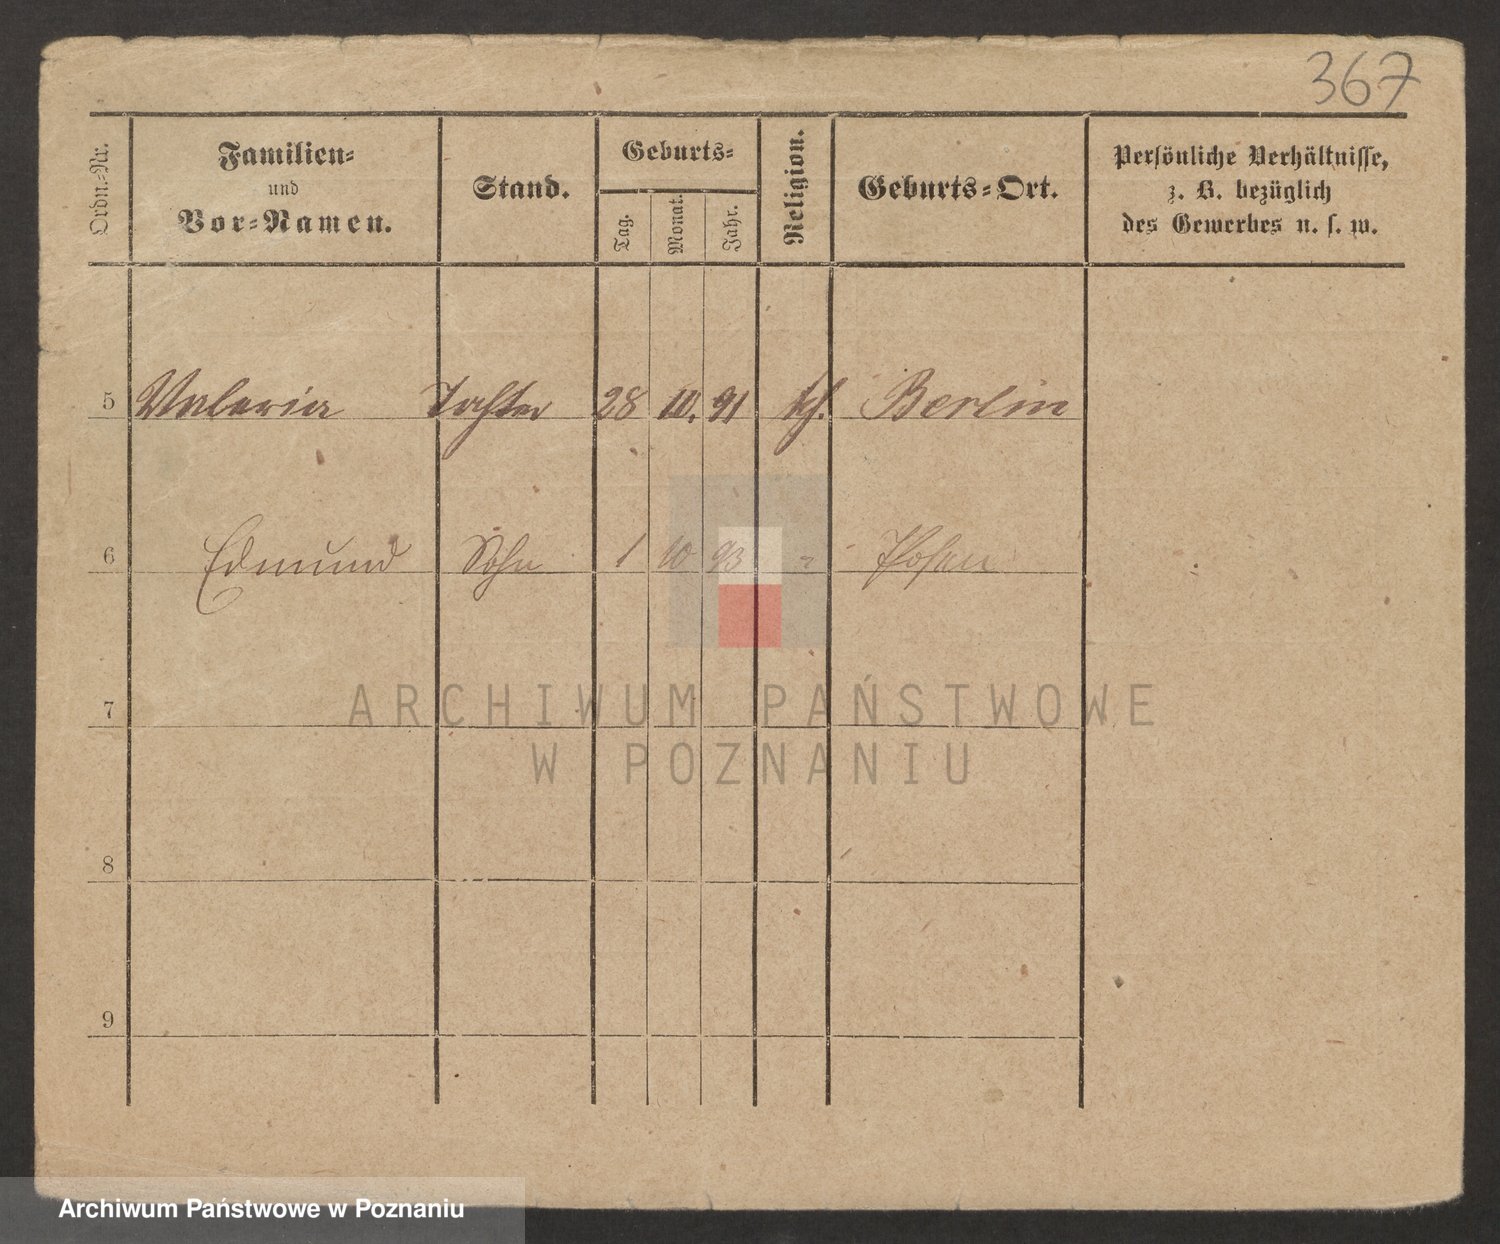 367
Ordn.-Nr.
Familien-
und
Vor-Namen.
Stand.
Geburts-
Tag.
Monat.
Jahr.
Religion.
Geburts-Ort.
Persönliche Verhältnisse,
z. B. bezüglich
des Gewerbes u. s. w.
5 Valeria Tochter 28 10. 91 kth. Berlin
6 Edmund Sohn 1 10 93 " Posen
7
8
9
ARCHIWUM PAŃSTWOWE
W POZNANIU
Archiwum Państwowe w Poznaniu